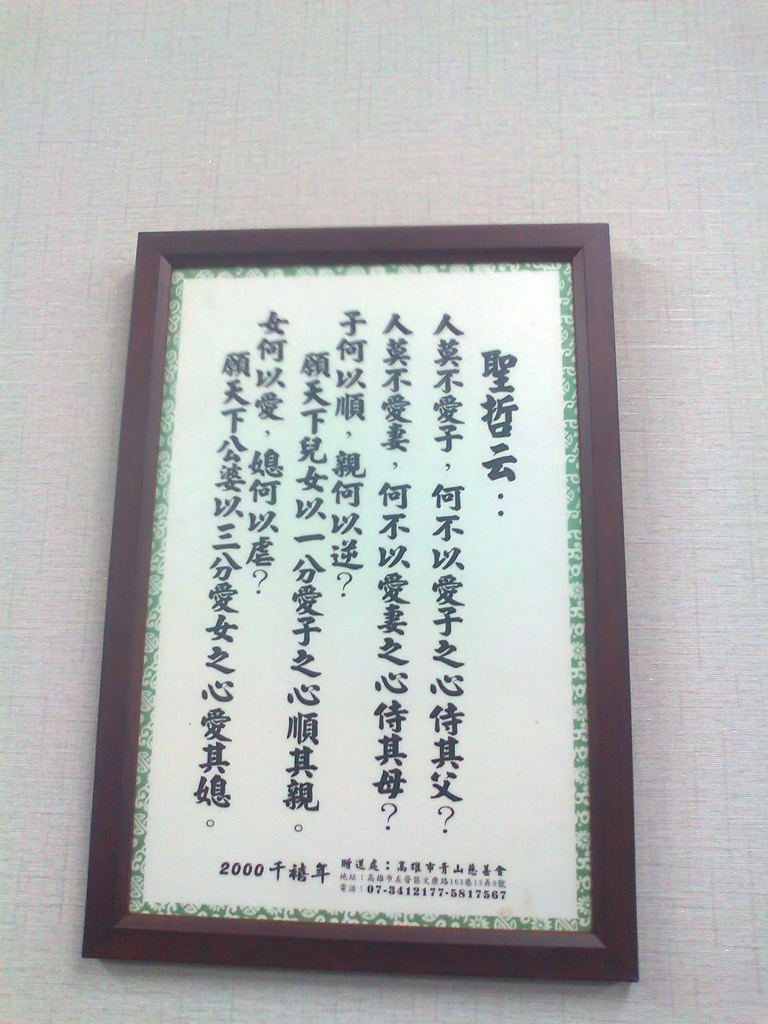 聖哲云：
人莫不愛子，何不以愛子之心侍其父？
人莫不愛妻，何不以愛妻之心侍其母？
子何以順，親何以逆？
願天下兒女以一分愛子之心順其親。
女何以愛，媳何以虐？
願天下公婆以三分愛女之心愛其媳。
2000千禧年
贈送處：高雄市青山慈善會
地址：高雄市左營區文康路163巷13弄9號
電話：07-3412177-5817567